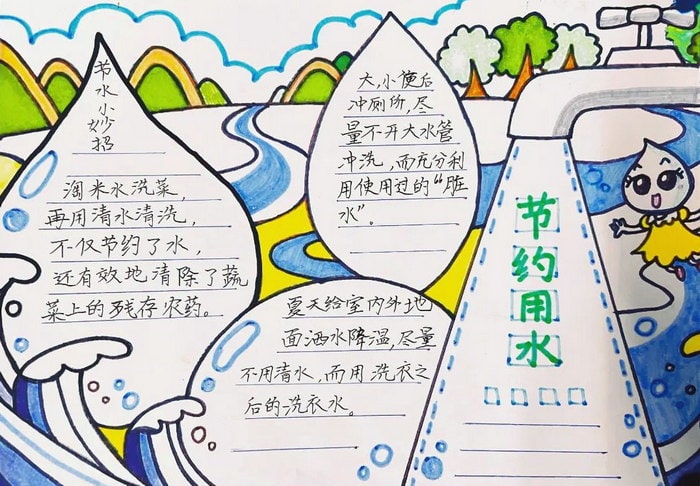 节水小妙招
淘米水洗菜，
再用清水清洗，
不仅节约了水，
还有效地清除了蔬
菜上的残存农药。
大，小便后
冲厕所，尽
量不开大水管
冲洗，而充分利
用使用过的“脏
水”。
夏天给室内外地
面洒水降温，尽量
不用清水，而用洗衣之
后的洗衣水。
节约用水